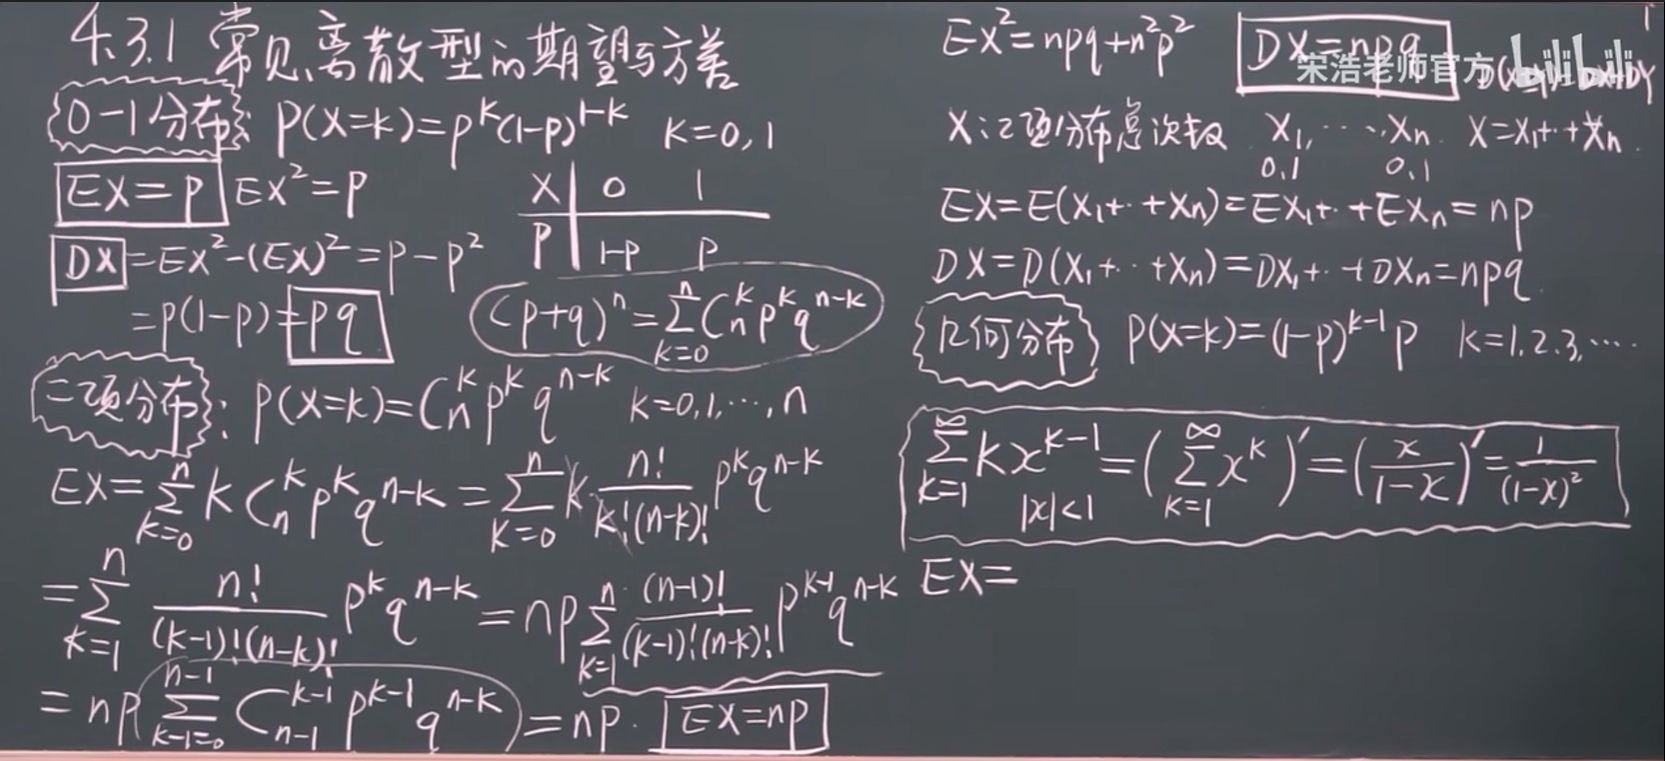 4.3.1 常见离散型的期望与方差
0-1分布 P(X=k)=p^k(1-p)^{1-k} k=0,1
EX=p EX²=p
X | 0 1
P | 1-p p
DX=EX²-(EX)²=p-p²
=p(1-p)=pq
(p+q)^n=∑_{k=0}^{n} C_n^k p^k q^{n-k}
二项分布: P(X=k)=C_n^k p^k q^{n-k} k=0,1,…,n
EX=∑_{k=0}^{n} k C_n^k p^k q^{n-k}=∑_{k=0}^{n} k n!/(k!(n-k)!) p^k q^{n-k}
=∑_{k=1}^{n} n!/((k-1)!(n-k)!) p^k q^{n-k}=np∑_{k=1}^{n} (n-1)!/((k-1)!(n-k)!) p^{k-1} q^{n-k}
=np∑_{k-1=0}^{n-1} C_{n-1}^{k-1} p^{k-1} q^{n-k}=np. EX=np
EX²=npq+n²p² DX=npq
宋浩老师官方 bilibili
X:二项分布总次数 X₁,…,Xₙ. X=X₁+‥+Xₙ.
0,1 0,1
EX=E(X₁+‥+Xₙ)=EX₁+‥+EXₙ=np
DX=D(X₁+‥+Xₙ)=DX₁+‥+DXₙ=npq.
几何分布 P(X=k)=(1-p)^{k-1}p k=1.2.3,….
∑_{k=1}^{∞} kx^{k-1}=(∑_{k=1}^{∞} x^k)'=(x/(1-x))'=1/(1-x)²
|x|<1
EX=